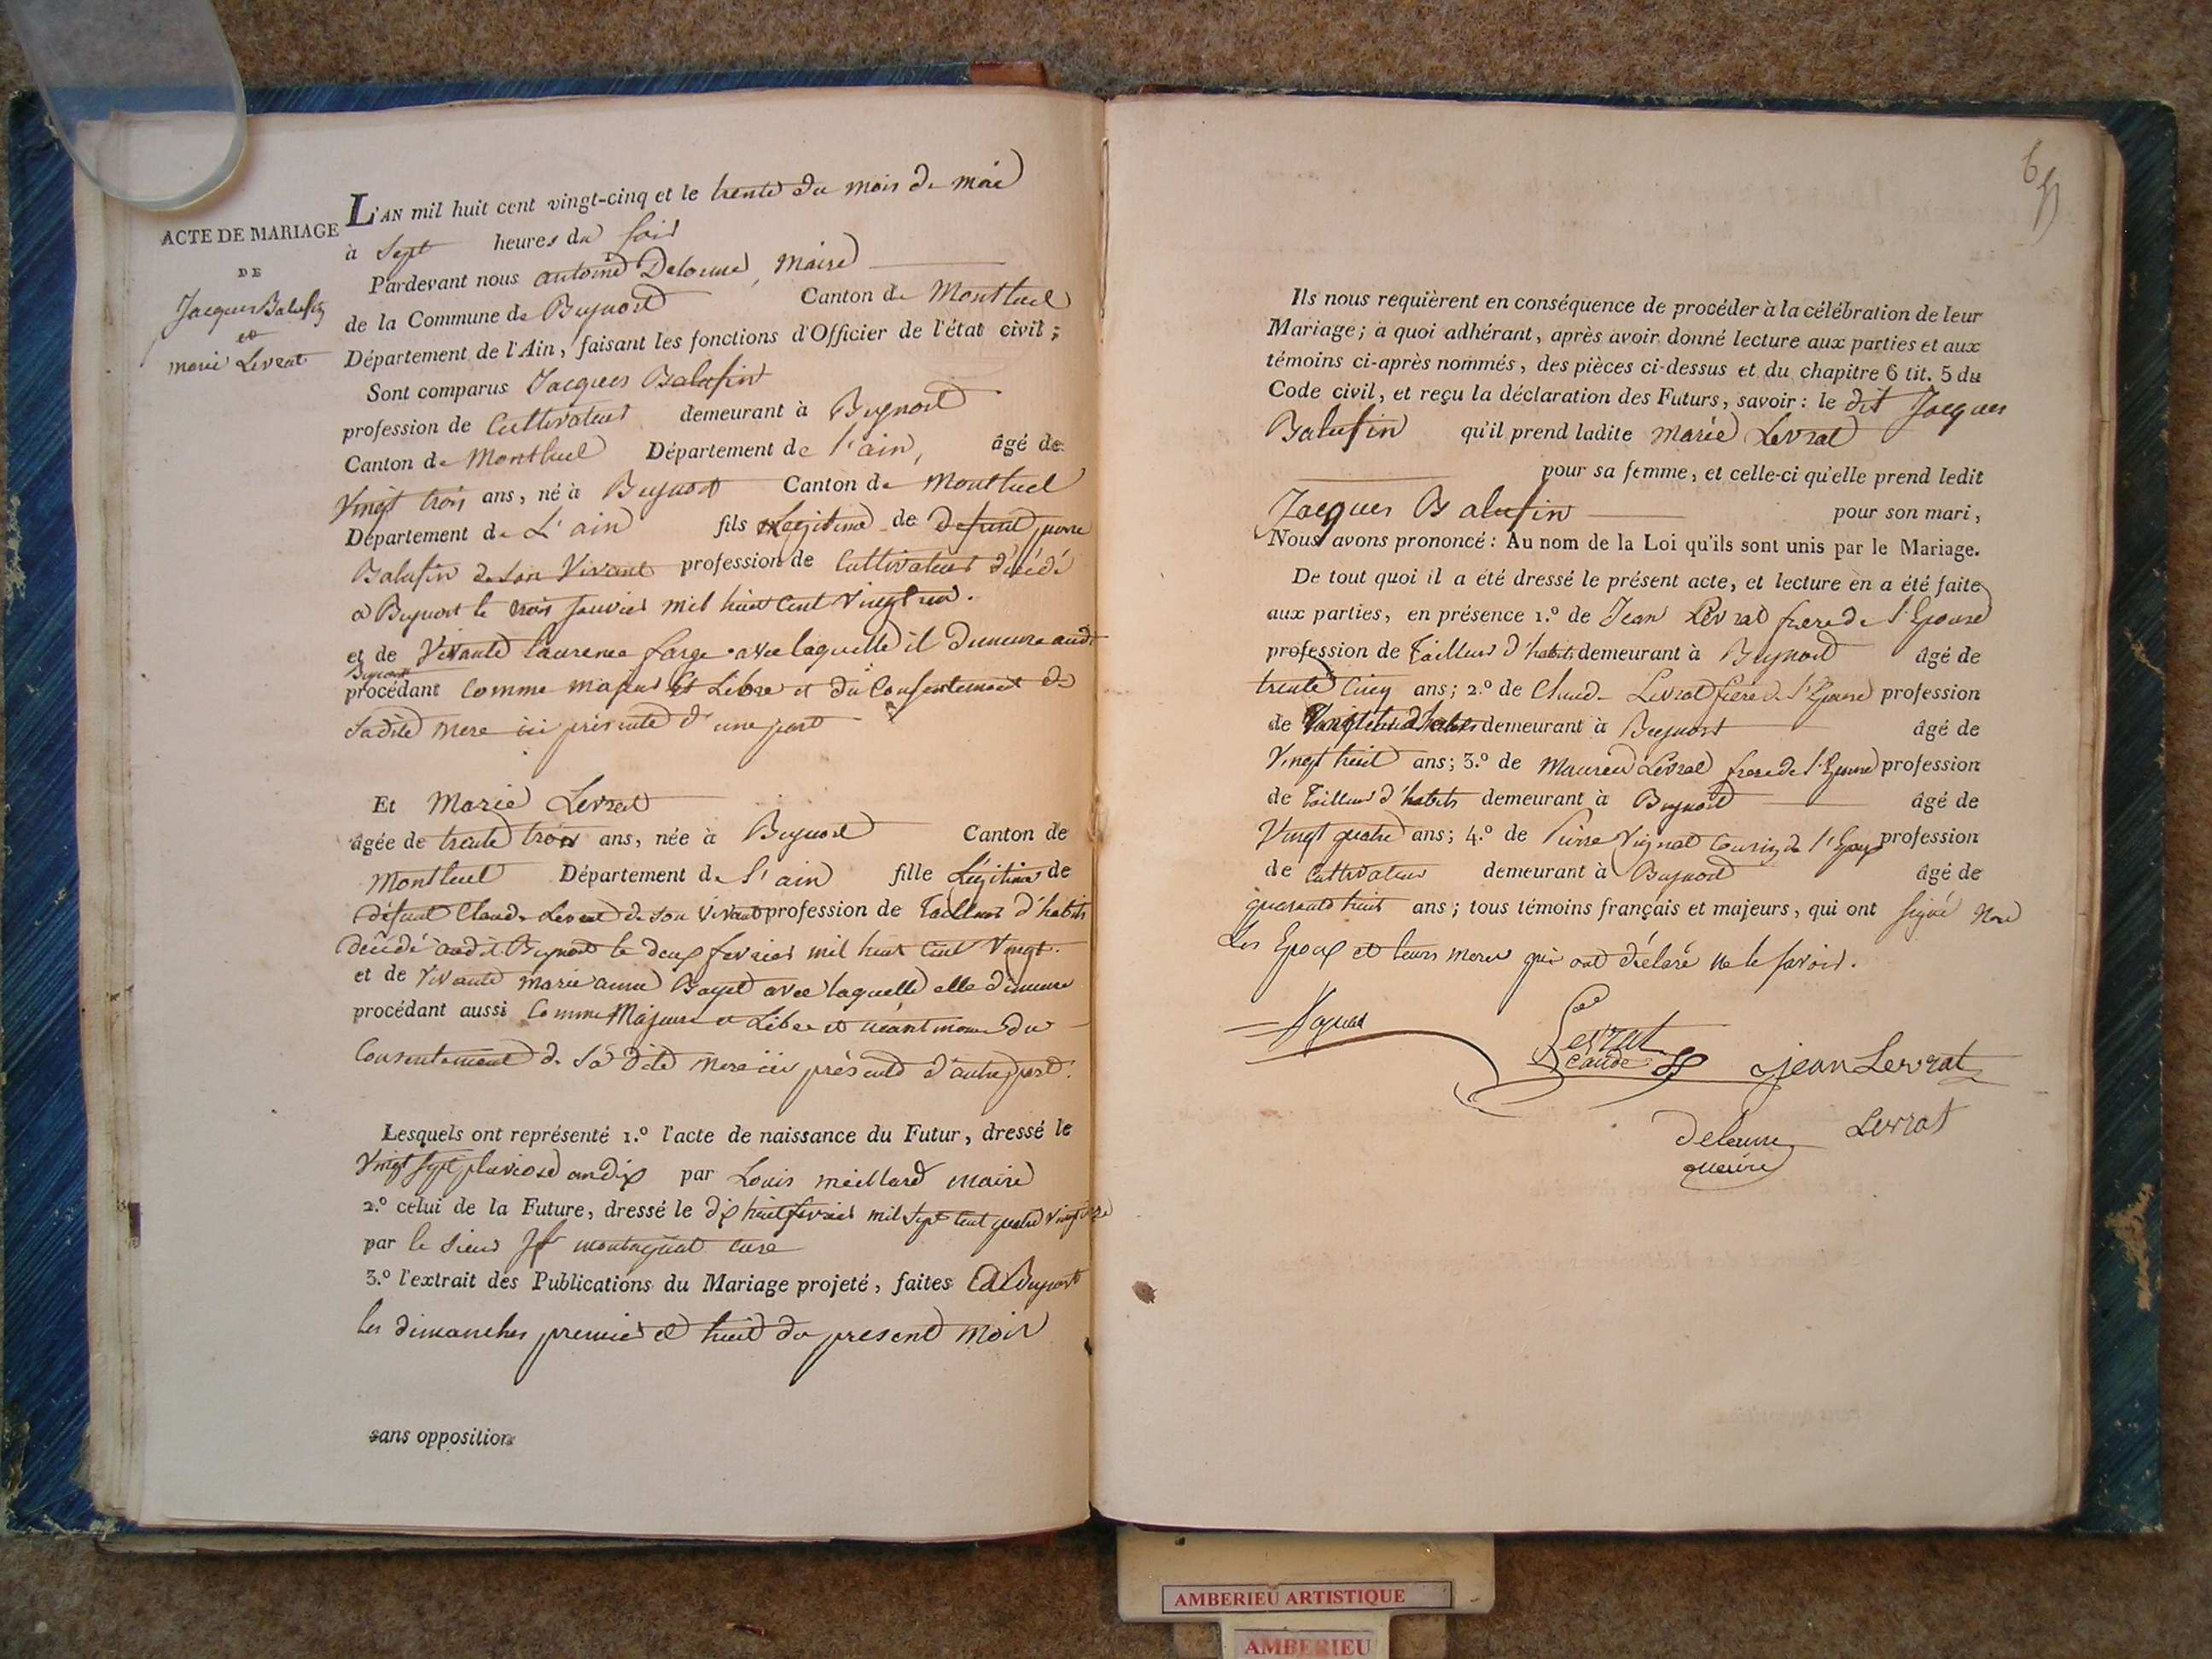 ACTE DE MARIAGE
DE
Jacques Balufin
et
marie Levrat
L'AN mil huit cent vingt-cinq et le trente du mois de mai
à Sept heures du soir
Pardevant nous antoine Delorme, Maire
de la Commune de Beynost Canton de Montluel
Département de l'Ain, faisant les fonctions d'Officier de l'état civil;
Sont comparus Jacques Balufin
profession de Cultivateur demeurant à Beynost
Canton de Montluel Département de l'ain, âgé de
Vingt trois ans, né à Beynost Canton de Montluel
Département de L'ain fils Legitime de defunt pierre
Balufin de son Vivant profession de Cultivateur décédé
a Beynost le trois janvier mil huit Cent Vingt un.
et de Vivante laurence farge avec laquelle il demeure audt
Beynost
procédant Comme majeur et Libre et du Consentement de
sadite mere ici présente d'une part
Et Marie Levrat
âgée de trente trois ans, née à Beynost Canton de
Montluel Département de l'ain fille Légitime de
défunt Claude Levrat de son vivant profession de Tailleur d'habits
décédé audit Beynost le deux fevrier mil huit Cent Vingt.
et de Vivante marie anne Bayet avec laquelle elle demeure
procédant aussi Comme Majeure et Libre et néantmoins du
Consentement de sa dite mere ici présente d'autre part.
Lesquels ont représenté 1.º l'acte de naissance du Futur, dressé le
Vingt sept pluviose an dix par Louis meillard maire
2.º celui de la Future, dressé le dix huit fevrier mil sept cent quatre vingt
par le Sieur montagnat cure
3.º l'extrait des Publications du Mariage projeté, faites a Beynost
les dimanches premier et huit du present mois
sans opposition
65
Ils nous requièrent en conséquence de procéder à la célébration de leur
Mariage; à quoi adhérant, après avoir donné lecture aux parties et aux
témoins ci-après nommés, des pièces ci-dessus et du chapitre 6 tit. 5 du
Code civil, et reçu la déclaration des Futurs, savoir: le dit Jacques
Balufin qu'il prend ladite marie Levrat
pour sa femme, et celle-ci qu'elle prend ledit
Jacques Balufin pour son mari,
Nous avons prononcé: Au nom de la Loi qu'ils sont unis par le Mariage.
De tout quoi il a été dressé le présent acte, et lecture en a été faite
aux parties, en présence 1.º de Jean Levrat frere de l'Epouse
profession de Tailleur d'habits demeurant à Beynost âgé de
trente Cinq ans; 2.º de Claude Levrat frere de l'Epouse profession
de demeurant à Beynost âgé de
Vingt huit ans; 3.º de Levrat frere de l'Epouse profession
de Tailleur d'habits demeurant à Beynost âgé de
Vingt quatre ans; 4.º de Pierre Vignat Cousin de l'Epoux profession
de Cultivateur demeurant à Beynost âgé de
quarante huit ans; tous témoins français et majeurs, qui ont signé Non
Les Epoux et leurs meres qui ont déclaré ne le savoir.
Levrat
jean Levrat
Levrat
delorme
maire
AMBERIEU ARTISTIQUE
AMBERIEU